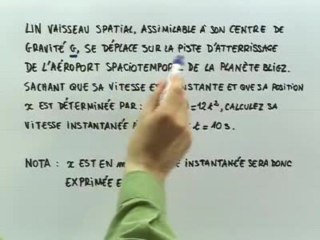 UN VAISSEAU SPATIAL, ASSIMILABLE À SON CENTRE DE
GRAVITÉ G, SE DÉPLACE SUR LA PISTE D'ATTERRISSAGE
DE L'AÉROPORT SPACIOTEMPOR DE LA PLANÈTE BLIGZ.
SACHANT QUE SA VITESSE E NSTANTE ET QUE SA POSITION
x EST DÉTERMINÉE PAR : =12t², CALCULEZ SA
VITESSE INSTANTANÉE t = 10 s.
NOTA : x EST EN m E INSTANTANÉE SERA DONC
EXPRIMÉE E